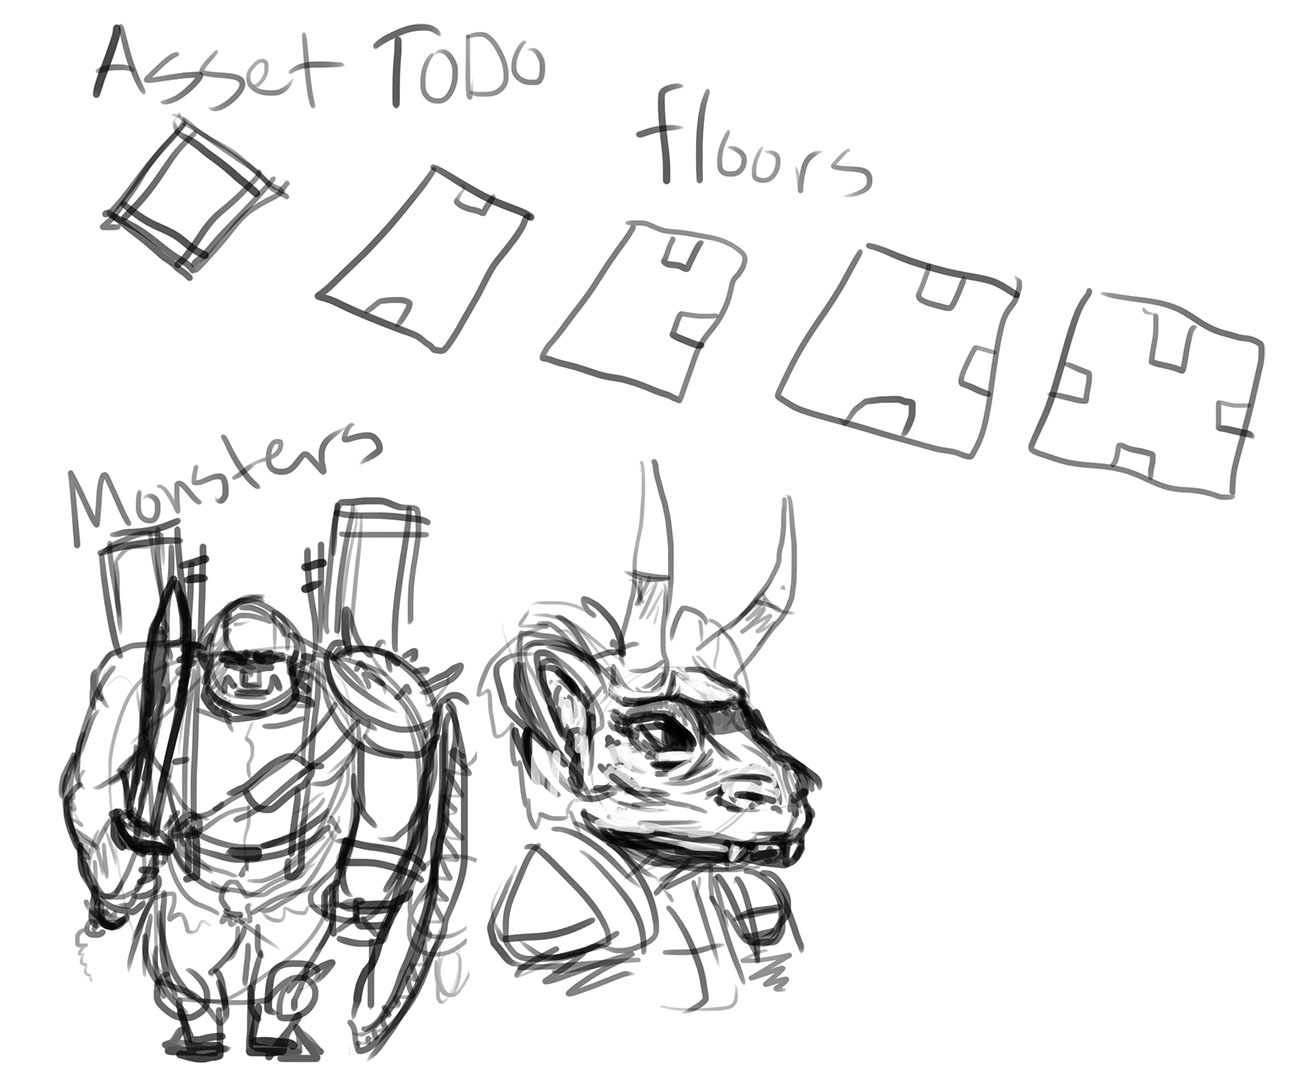 Asset ToDo
floors
Monsters